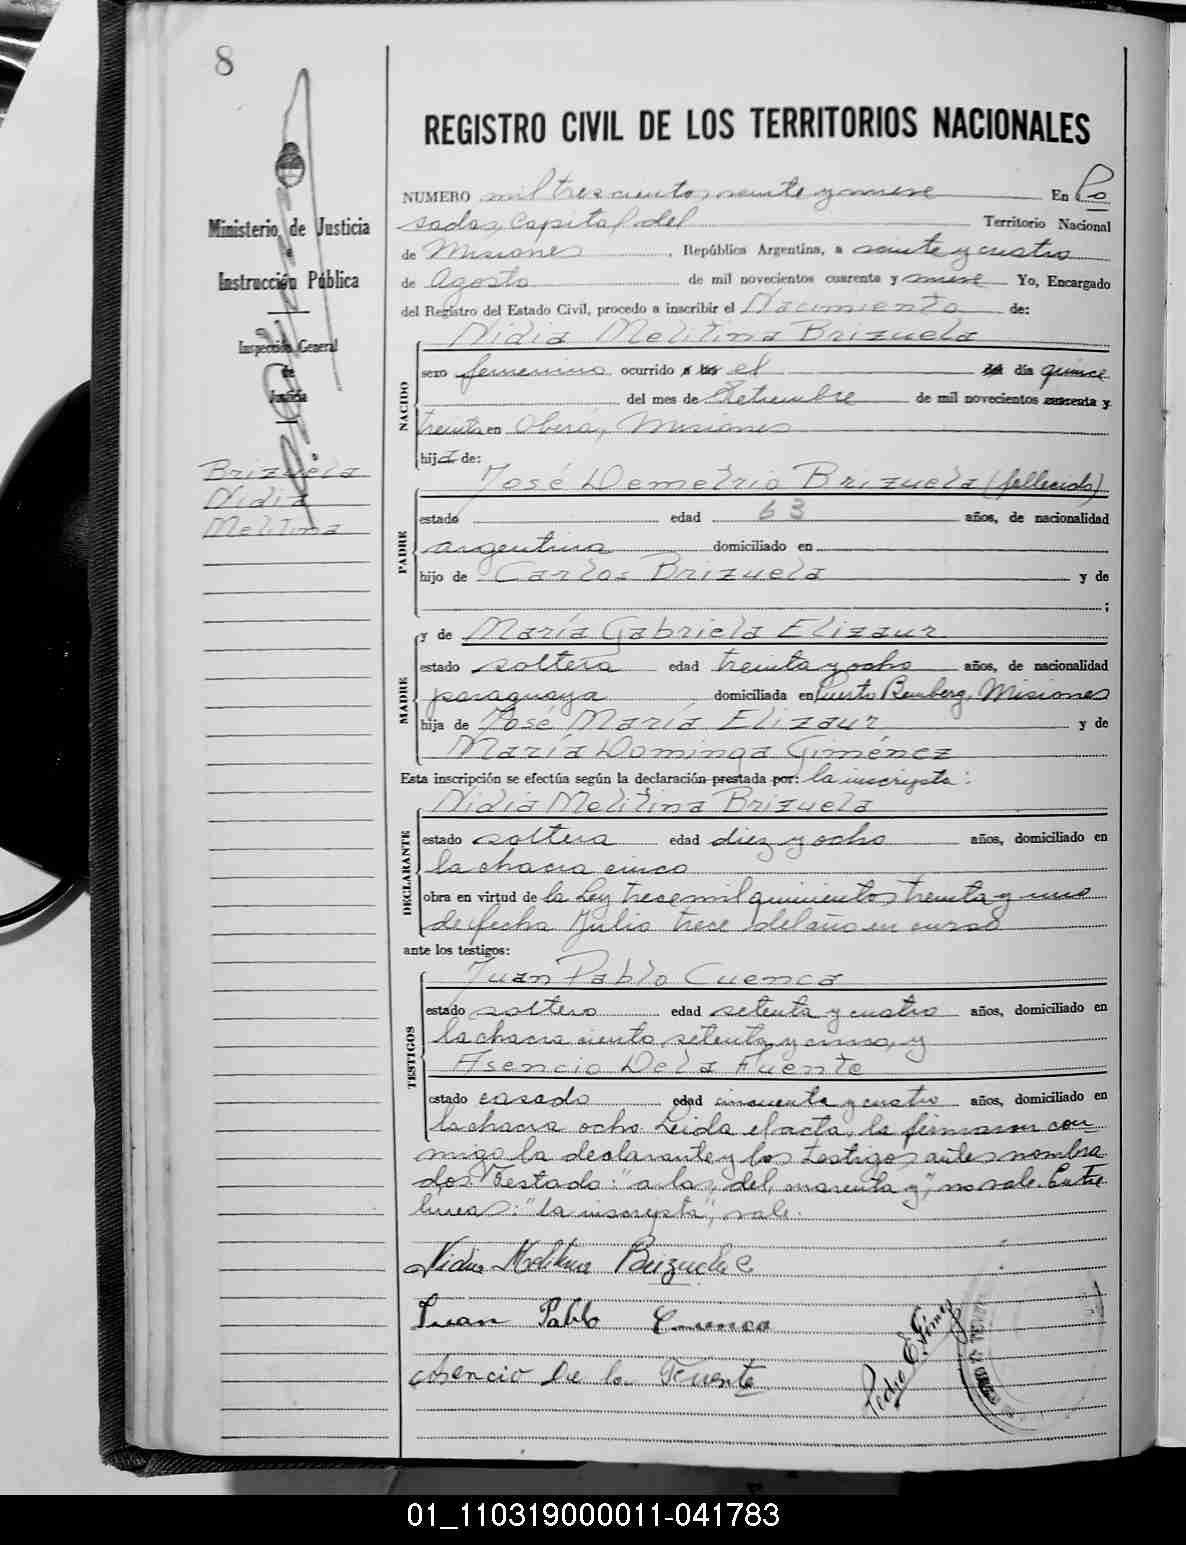 8
REGISTRO CIVIL DE LOS TERRITORIOS NACIONALES
Ministerio de Justicia
e
Instrucción Pública
Inspección General
de
Justicia
Brizuela
Nidia
Melitina
NUMERO mil trescientos veinte y nueve En Po
sadas, Capital del Territorio Nacional
de Misiones, República Argentina, a veinte y cuatro
de Agosto de mil novecientos cuarenta y nueve Yo, Encargado
del Registro del Estado Civil, procedo a inscribir el Nacimiento de:
NACIDO
Nidia Melitina Brizuela
sexo femenino ocurrido a las el del día quince
del mes de Setiembre de mil novecientos cuarenta y
treinta en Oberá, Misiones
hija de:
PADRE
José Demetrio Brizuela (fallecido)
estado edad 63 años, de nacionalidad
argentina domiciliado en
hijo de Carlos Brizuela y de
;
MADRE
y de María Gabriela Elizaur
estado soltera edad treinta y ocho años, de nacionalidad
paraguaya domiciliada en Puerto Bemberg, Misiones
hija de José María Elizaur y de
María Dominga Giménez
Esta inscripción se efectúa según la declaración prestada por: la inscripta:
DECLARANTE
Nidia Melitina Brizuela
estado soltera edad diez y ocho años, domiciliado en
la chacra cinco
obra en virtud de la Ley trece mil quinientos treinta y uno
de fecha Julio trece del año en curso
ante los testigos:
TESTIGOS
Juan Pablo Cuenca
estado soltero edad setenta y cuatro años, domiciliado en
la chacra ciento setenta y cinco, y
Asencio De la Fuente
estado casado edad cincuenta y cuatro años, domiciliado en
la chacra ocho Leida el acta, la firmaron con
migo la declarante y los testigos antes nombra
dos. Testado: "a las, del, cuarenta y", no vale. Entre
lineas: "la inscripta", vale.
Nidia Melitina Brizuela
Juan Pablo Cuenca
Asencio De la Fuente
Pedro E. Gómez
01_110319000011-041783